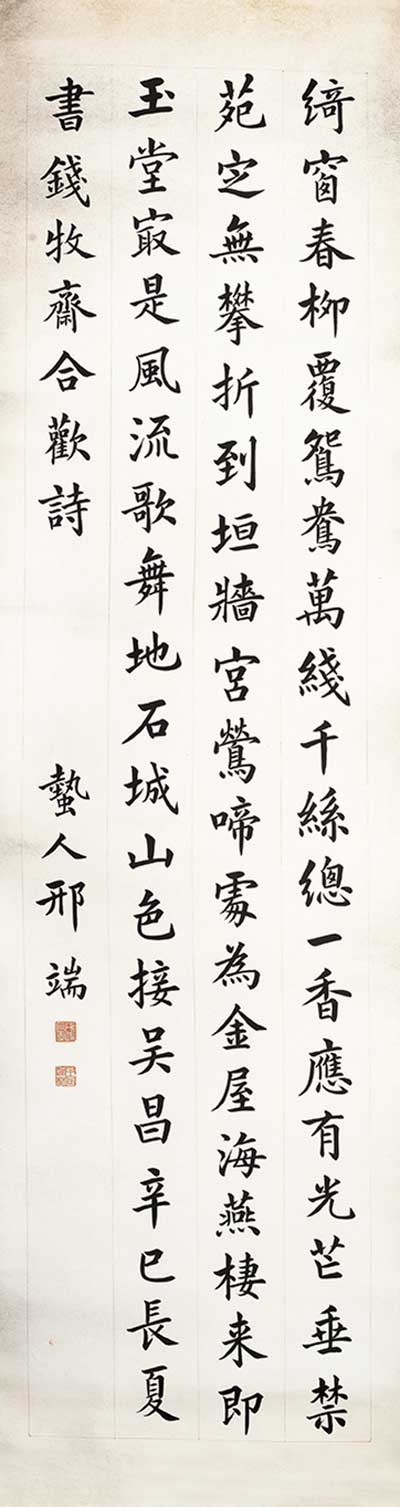 綺窗春柳覆鴛鴦萬綫千絲總一香應有光芒垂禁
苑定無攀折到垣牆宮鶯啼處為金屋海燕棲来即
玉堂㝡是風流歌舞地石城山色接吴昌辛巳長夏
書錢牧齋合歡詩
蟄人邢端